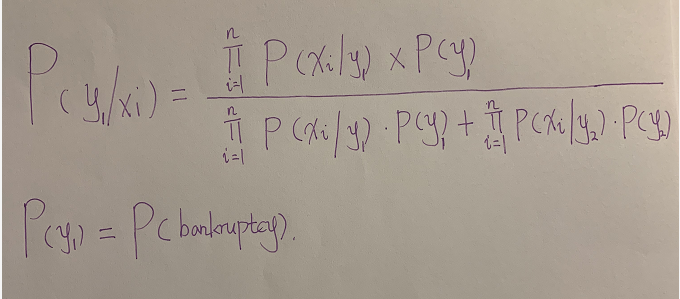 P(y₁/xi) = ∏ⁿᵢ₌₁ P(xi/y₁) × P(y₁) / ∏ⁿᵢ₌₁ P(xi/y₁) · P(y₁) + ∏ⁿᵢ₌₁ P(xi/y₂) · P(y₂)
P(y₁) = P(bankruptcy).